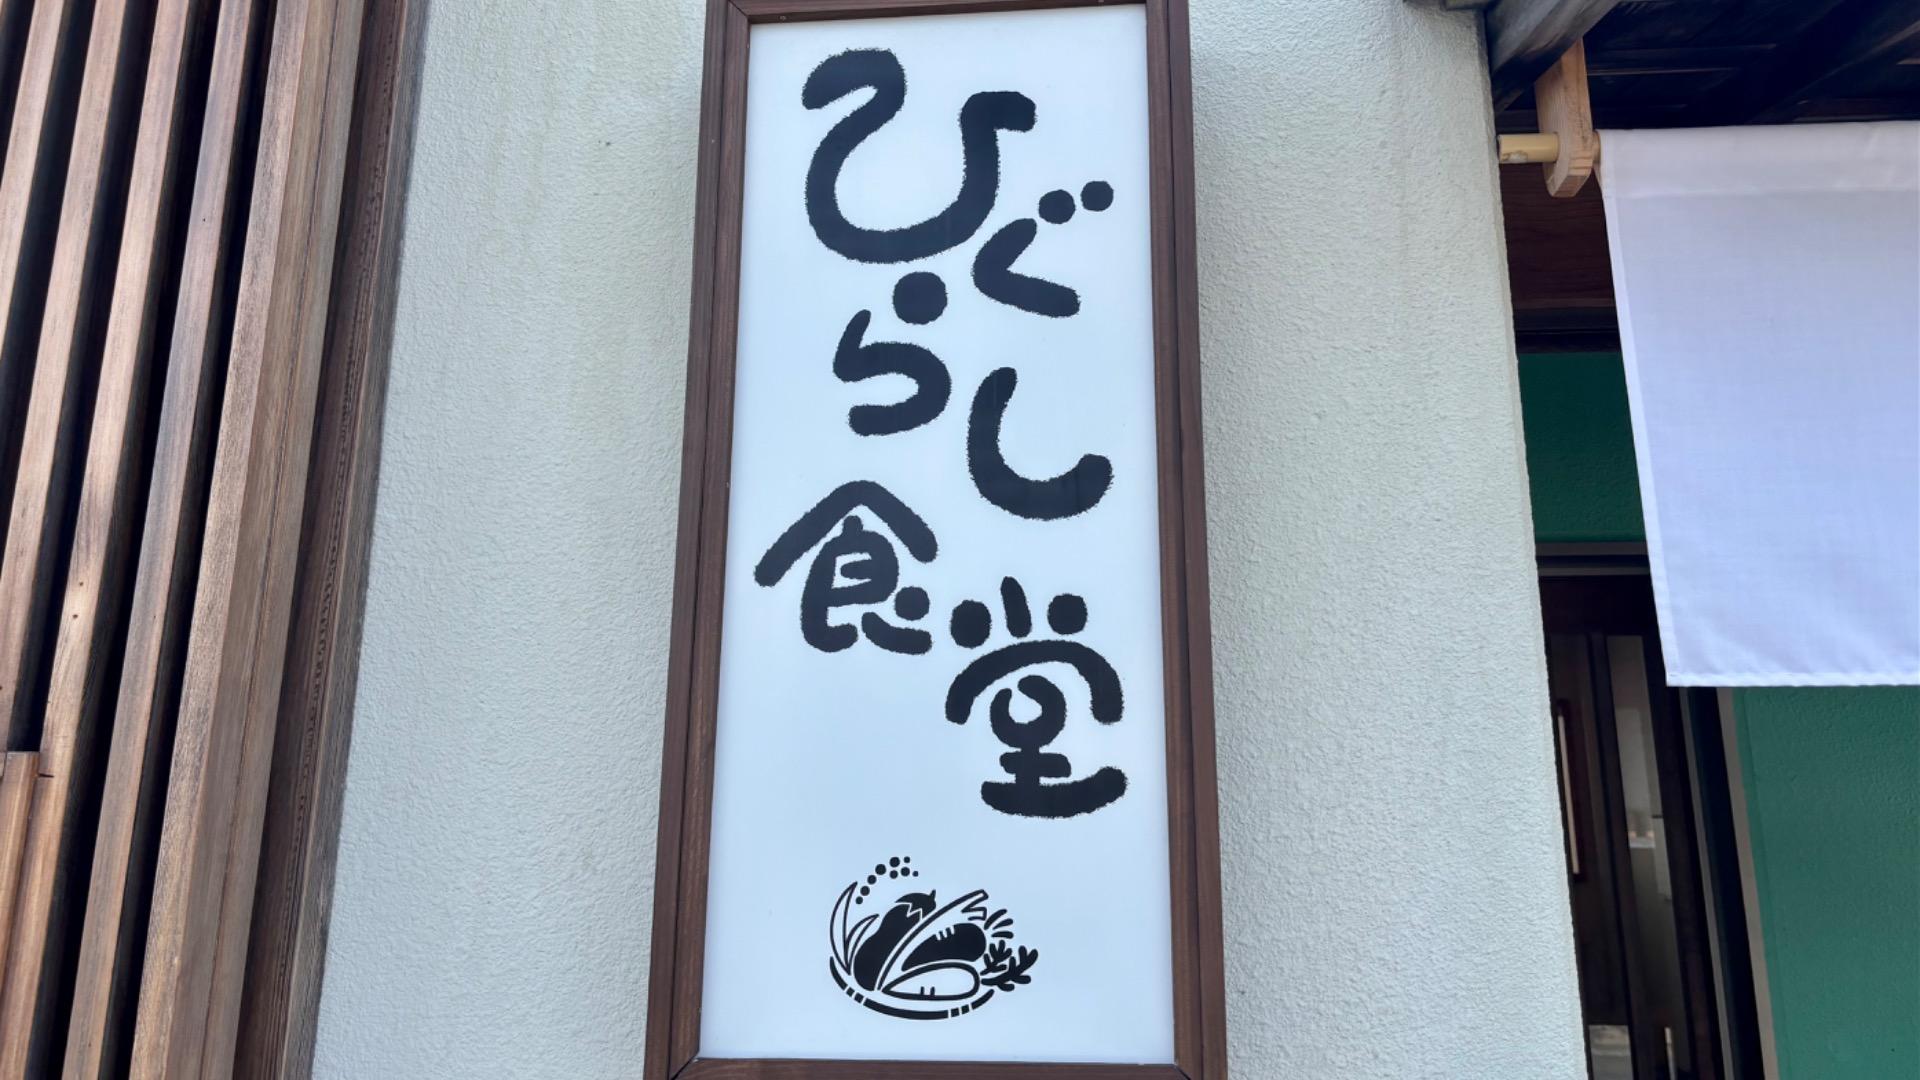 ひぐらし食堂